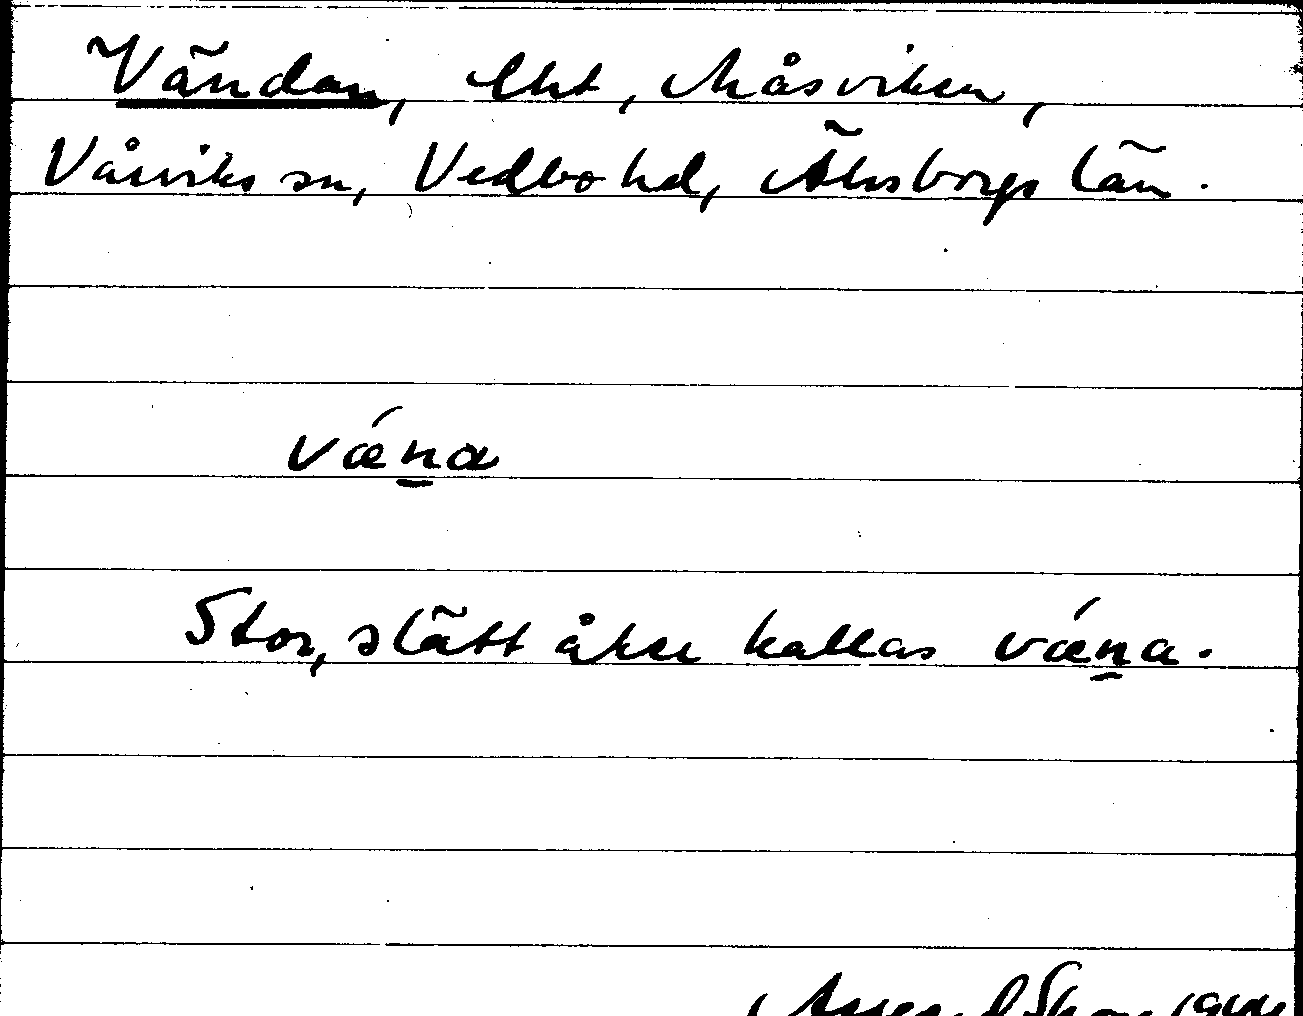 Vändan, , Måsviken,
Vårviks sn, Vedbo hd, Älvsborgs län.
vǽn̲a
Stor, slätt åker kallas vǽn̲a.